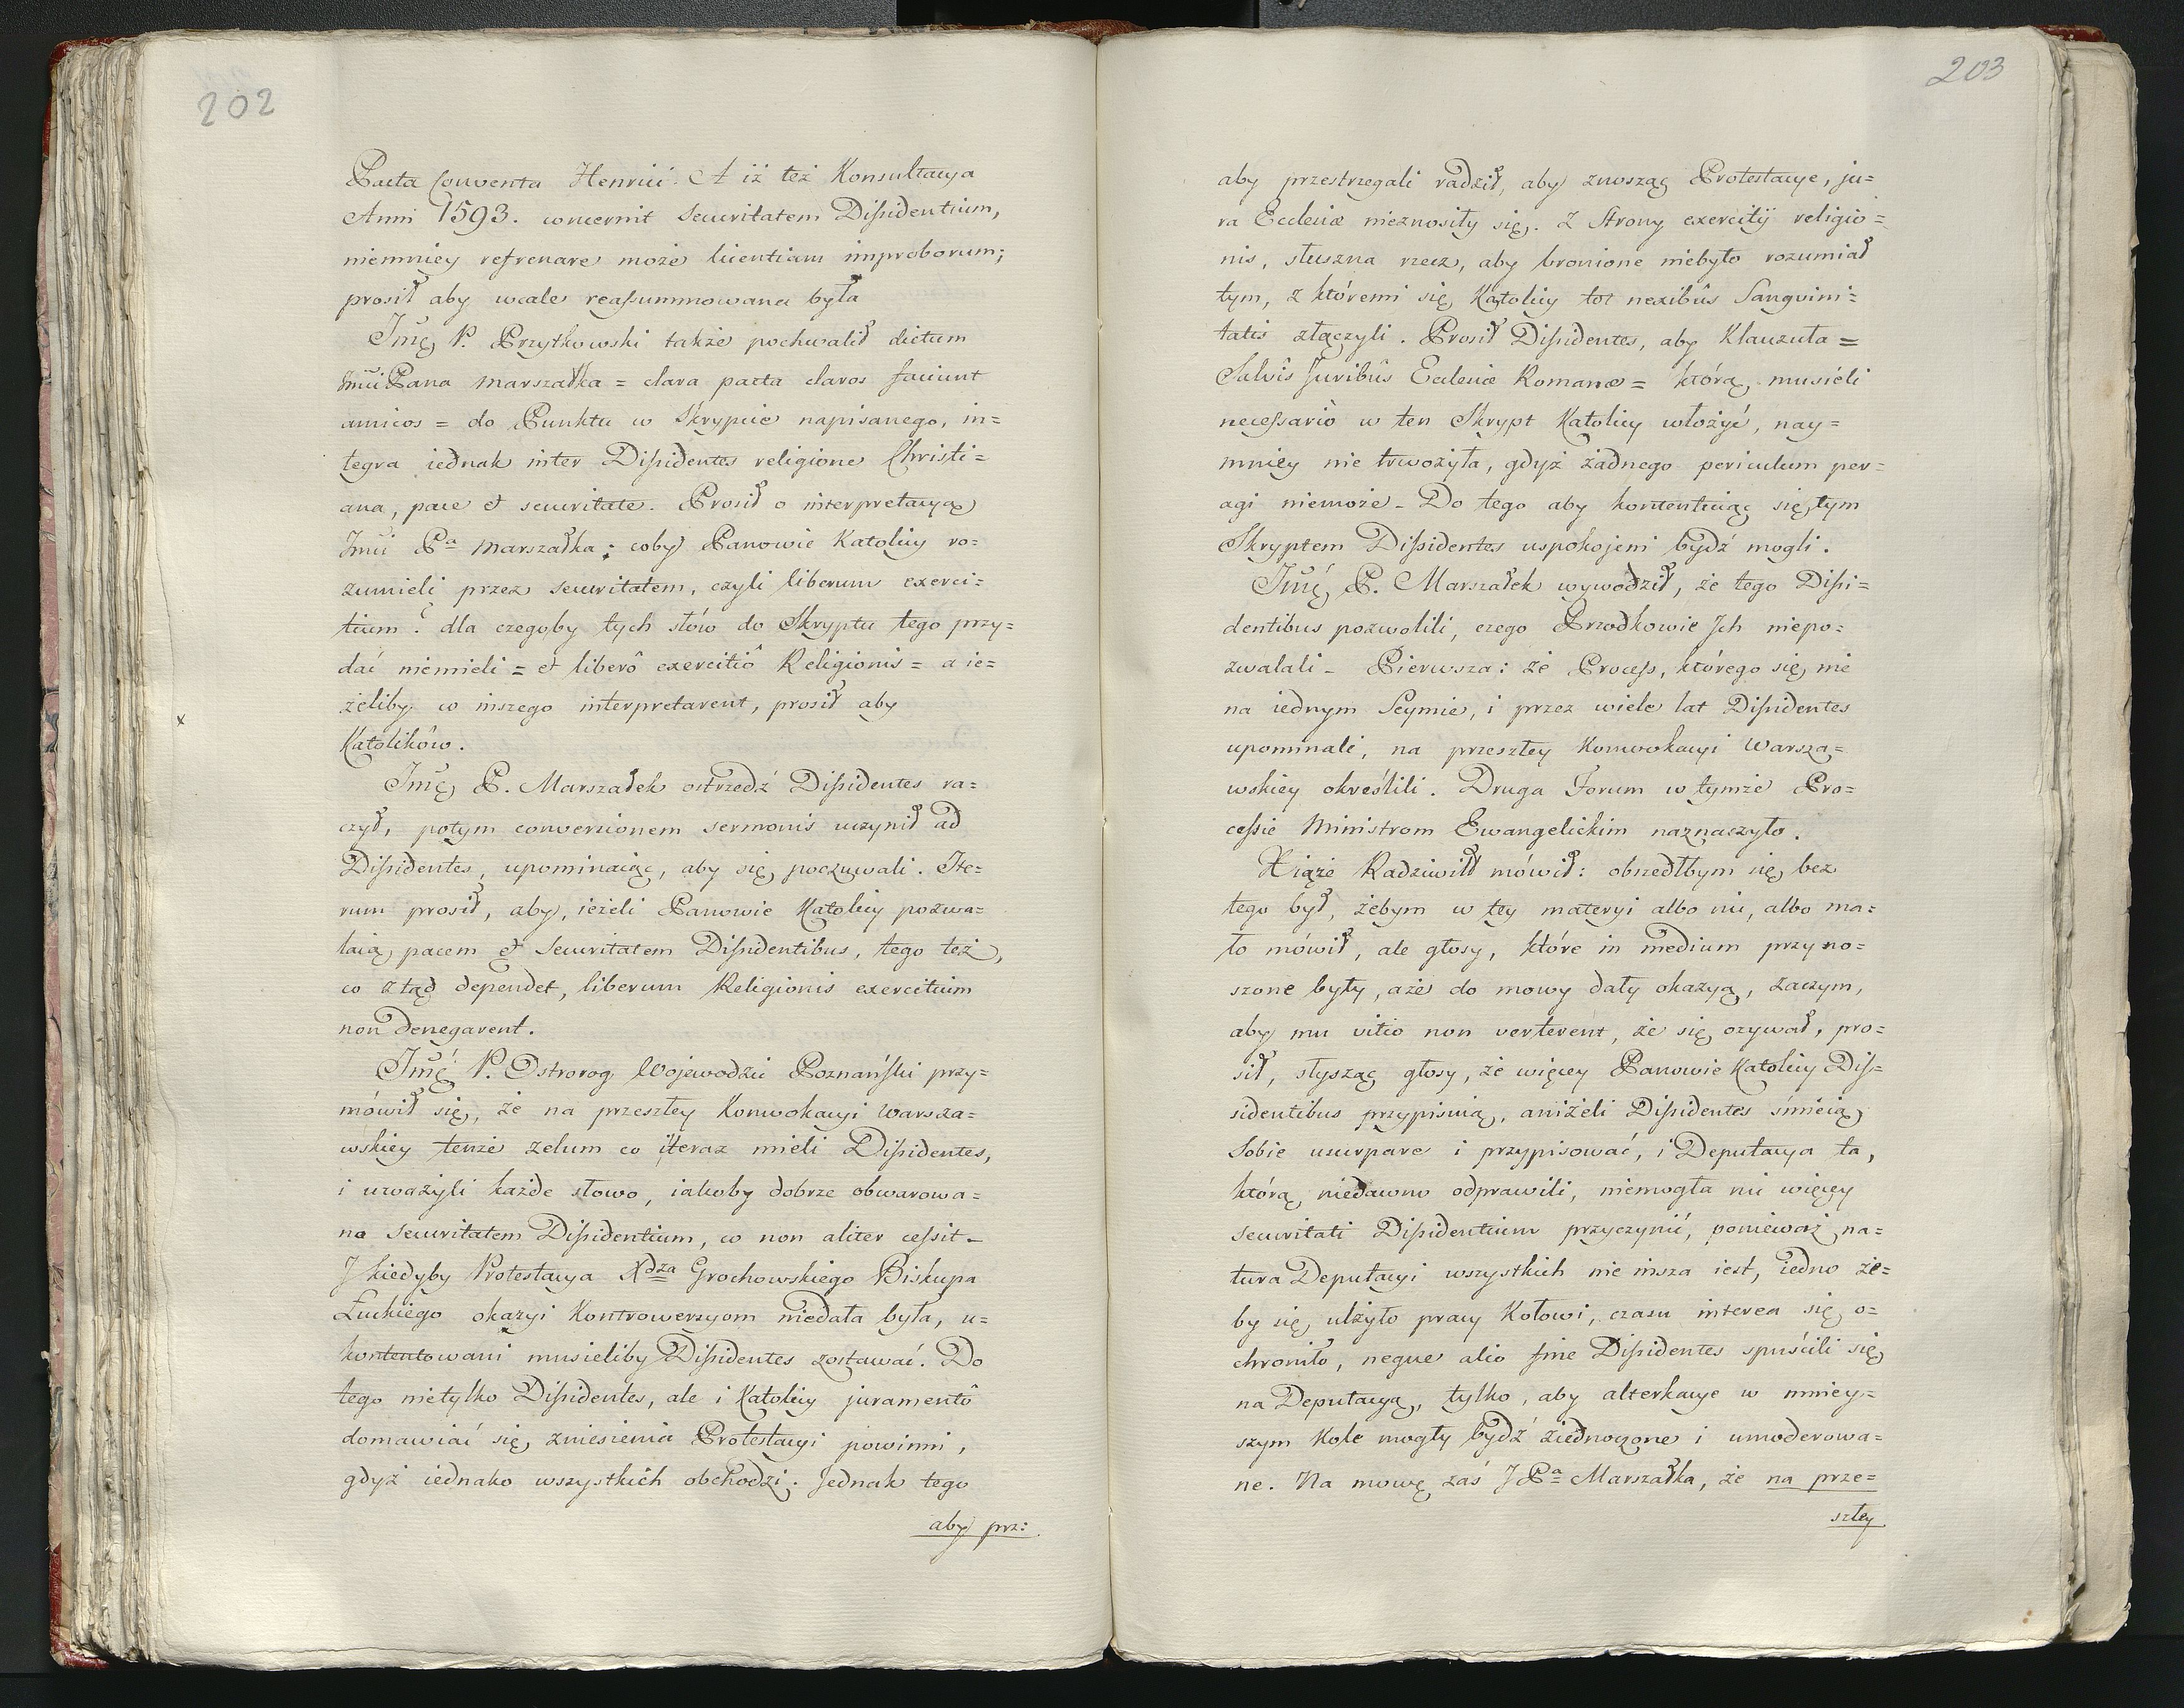 202
Pacta Conventa Henrici. A iż też Konsultacya
Anni 1593. concernit Securitatem Dißidentium,
niemniey refrenare może licentiam improborum;
prosił aby wcale reaßummowana była
Jmę P. Przytkowski także pochwalił dictum
Jmci Pana Marszałka = clara pacta claros faciunt
amicos = do Punktu w Skrypcie napisanego, in=
tegra iednak inter Dißidentes religione Christi=
ana, pace et securitate. Prosił o interpretacyą
Jmci Pa Marszałka: coby Panowie Katolicy ro=
zumieli przez securitatem, czyli liberum exerci=
tium? dla czegoby tych słów do Skryptu tego przy=
dać niemieli = et liberô exercitiô Religionis = a ie=
żeliby w inszego interpretarent, prosił aby
Katolików.
Jmę P. Marszałek ostrzedź Dißidentes ra=
czył, potym conversionem sermonis uczynił ad
Dißidentes, upominaiąc, aby się poczuwali. Ite=
rum prosił, aby, ieżeli Panowie Katolicy pozwa=
laią pacem et Securitatem Dißidentibus, tego też,
co ztąd dependet, liberum Religionis exercitium
non denegarent.
Jmć P. Ostrorog Wojewodzic Poznański przy=
mówił się, że na przeszłey Konwokacyi Warsza=
wskiey tenże zelum co i teraz mieli Dißidentes,
i uważyli każde słowo, iakoby dobrze obwarowa=
no Securitatem Dißidentium, co non aliter ceßit –
J kiedyby Protestacya Xdza Grochowskiego Biskupa
Łuckiego okazyi Kontrowersyom niedała była, u=
kontentowani musieliby Dißidentes zostawać. Do
tego nietylko Dißidentes, ale i Katolicy juramentô
domawiać się zniesienia Protestacyi powinni,
gdyż iednako wszystkich obchodzi. Jednak tego
aby prz:
203
aby przestrzegali radził, aby znosząc Protestacye, ju=
ra Ecclesiæ nieznosiły się. Z Strony exercitij religio=
nis, słuszna rzecz, aby bronione niebyło rozumiał
tym, z któremi się Katolicy tot nexibûs Sanguini=
tatis złączyli. Prosił Dißidentes, aby Klauzuła =
Salvis Juribûs Ecclesiæ Romanæ = którą musieli
neceßariò w ten Skrypt Katolicy włożyć, nay=
mniey nie trwożyła, gdyż żadnego periculum per=
agi niemoże – Do tego aby kontentuiąc się tym
Skryptem Dißidentes uspokojeni bydź mogli.
Jmć P. Marszałek wywodził, że tego Dißi=
dentibus pozwolili, czego Przodkowie Jch niepo=
zwalali – Pierwsza: że Proceß, którego się nie
na iednym Seymie, i przez wiele lat Dißidentes
upominali, na przeszłey Konwokacyi Warsza=
wskiey określili. Druga Forum w tymże Pro=
ceßie Ministrom Ewangelickim naznaczyło.
Xiąże Radziwiłł mówił: obszedłbym się bez
tego był, żebym w tey materyi albo nic, albo ma=
ło mówił, ale głosy, które in medium przyno=
szone były, aże do mowy dały okazyą, zaczym,
aby mu vitio non verterent, że się ozywał, pro=
sił, słysząc głosy, że więcey Panowie Katolicy Diß=
sidentibus przypisuią, aniżeli Dißidentes śmieią
Sobie usurpare i przypisować, i Deputacya ta,
którą niedawno odprawili, niemogła nic więcey
securitati Dißidentium przyczynić, ponieważ na=
tura Deputacyi wszystkich nie insza iest, iedno że=
by się ulżyło pracy Kołowi, czasu interea się o=
chroniło, neque alio fine Dißidentes spuścili się
na Deputacyą, tylko, aby alterkacye w mniey=
szym Kole mogły bydź ziednoczone i umoderowa=
ne. Na mowę zaś J Pa Marszałka, że na prze=
szłey